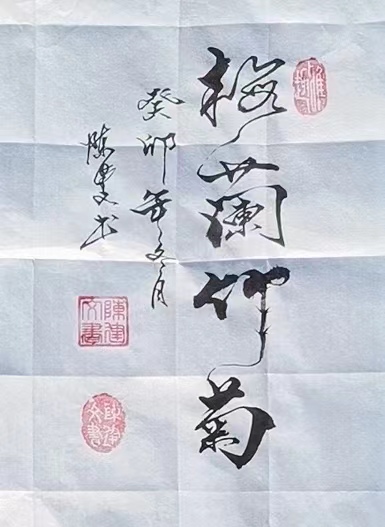 梅蘭竹菊
癸卯年冬月
陈建文书
陳建文書
陳建文書